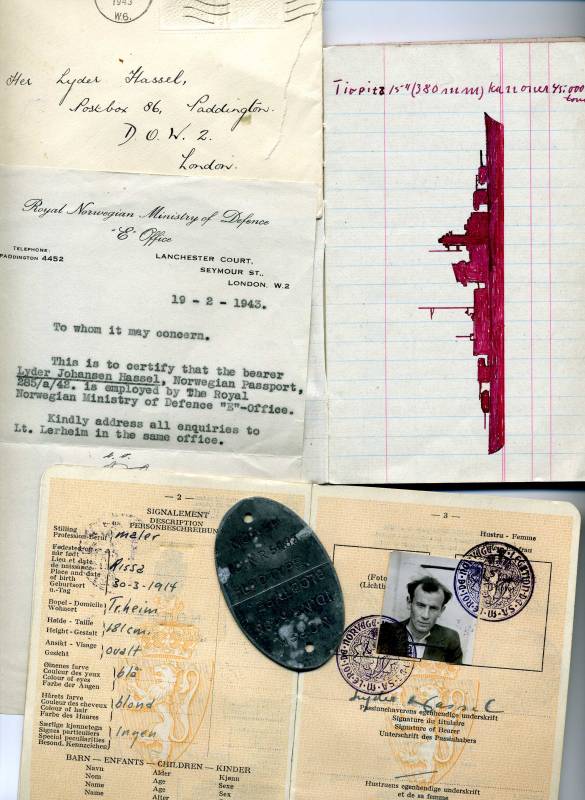 1943
W.6.
Her Lyder Hassel,
Postbox 86, Paddington.
D.O.W.2.
London.
Royal Norwegian Ministry of Defence
"E" Office
TELEPHONE:
PADDINGTON 4452
LANCHESTER COURT,
SEYMOUR ST.,
LONDON, W.2
19 - 2 - 1943.
To whom it may concern.
This is to certify that the bearer
Lyder Johansen Hassel, Norwegian Passport,
285/a/42. is employed by The Royal
Norwegian Ministry of Defence "E"-Office.
Kindly address all enquiries to
Lt. Lerheim in the same office.
Tirpitz 15" (380 mm) kanoner 45.000
tons
— 2 —
SIGNALEMENT
DESCRIPTION
PERSONBESCHREIBUNG
Stilling
Profession-Beruf
maler
Fødested og
når født
Lieu et date
de naissance
Place and date
of birth
Geburtsort
u.-Tag
Rissa
30-3-1914
Bopel - Domicile
Wohnort
Tr.heim
Høide - Taille
Height - Gestalt
181 cm.
Ansikt - Visage
Gesicht
ovalt
Øinenes farve
Couleur des yeux
Colour of eyes
Farbe der Augen
blå
Hårets farve
Couleur des cheveux
Colour of hair
Farbe des Haares
blond
Særlige kjennetegn
Signes particuliers
Special peculiarities
Besond. Kennzeichen
Ingen
BARN — ENFANTS — CHILDREN — KINDER
Navn Alder Kjønn
Nom Age Sexe
Name Age Sex
Name Alter
— 3 —
Hustru - Femme
(Foto
(Lichtb
Lyder Hassel
Passinnehaverens egenhendige underskrift
Signature du titulaire
Signature of Bearer
Unterschrift des Passinhabers
Hustruens egenhendige underskrift
et de sa femme